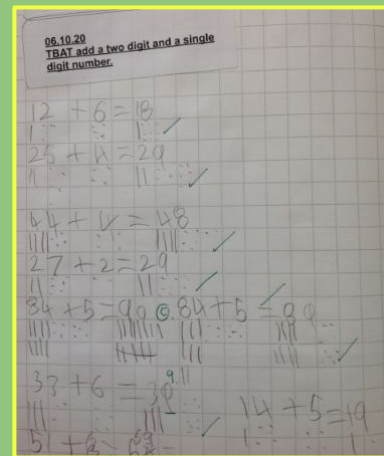 06.10.20
TBAT add a two digit and a single
digit number.
12 + 6 = 18
25 + 4 = 29
44 + 4 = 48
27 + 2 = 29
84 + 5 = 90 © 84 + 5 = 89
33 + 6 = 39
14 + 5 = 19
51 +